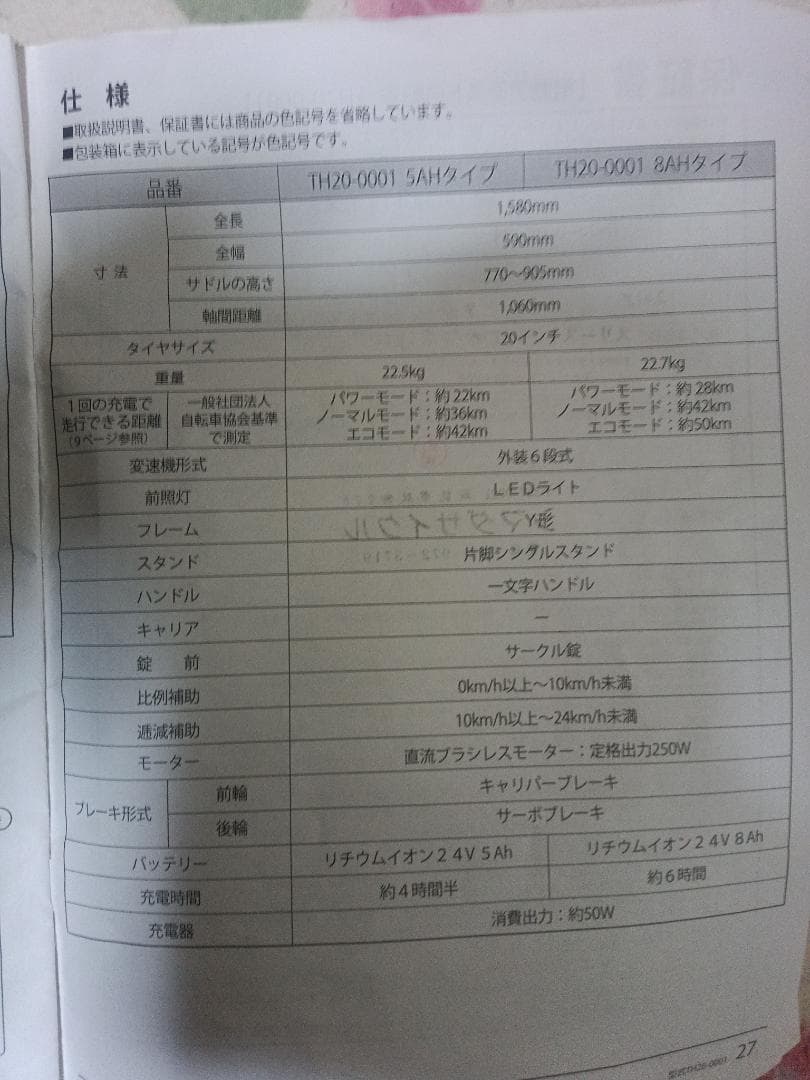 仕 様
■取扱説明書、保証書には商品の色記号を省略しています。
■包装箱に表示している記号が色記号です。
品番 TH20-0001 5AHタイプ TH20-0001 8AHタイプ
寸 法
全長 1,580mm
全幅 590mm
サドルの高さ 770〜905mm
軸間距離 1,060mm
タイヤサイズ 20インチ
重量 22.5kg 22.7kg
1回の充電で 一般社団法人 パワーモード：約22km パワーモード：約28km
走行できる距離 自転車協会基準 ノーマルモード：約36km ノーマルモード：約42km
(9ページ参照) で測定 エコモード：約42km エコモード：約50km
変速機形式 外装６段式
前照灯 ＬＥＤライト
フレーム Y形
スタンド 片脚シングルスタンド
ハンドル 一文字ハンドル
キャリア ー
錠 前 サークル錠
比例補助 0km/h以上〜10km/h未満
逓減補助 10km/h以上〜24km/h未満
モーター 直流ブラシレスモーター：定格出力250W
ブレーキ形式
前輪 キャリパーブレーキ
後輪 サーボブレーキ
バッテリー リチウムイオン２４V５Ah リチウムイオン２４V８Ah
充電時間 約４時間半 約６時間
充電器 消費出力：約50W
27